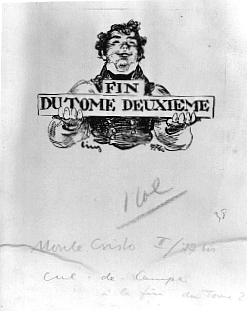 FIN
DU TOME DEUXIEME
1 col
Monte Cristo II/
cul-de-lampe
à la fin du Tome 2